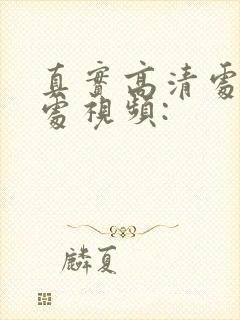 真實高清處
處視頻:
麟夏